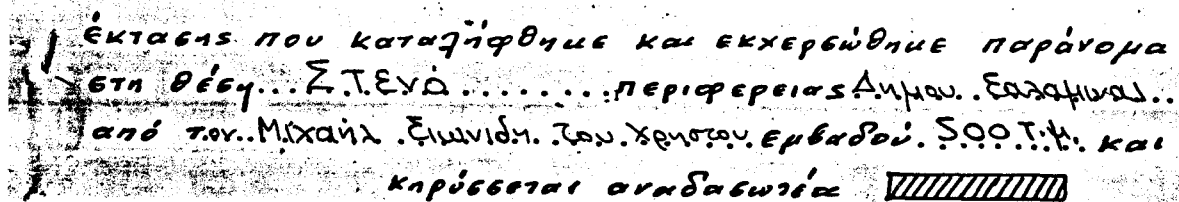 έκτασης που καταλήφθηκε και εκχερσώθηκε παράνομα
στη θέση...ΣΤΕΝΟ........περιφερειας Δημου..Σαλαμιναs..
από τον..Μιχαήλ.Σιωνιδη.του.Χρηστου.εμβαδού.500 τ.μ. και
κηρύσσεται αναδασωτέα